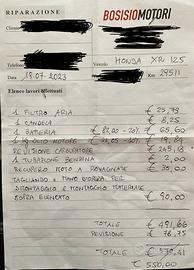 RIPARAZIONE
BOSISIOMOTORI
Cliente
Telefono
Veicolo HONDA XR 125
Data 19.07.2023
Km 29511
Elenco lavori effettuati
1 FILTRO ARIA € 25,79
1 CANDELA € 8,25
1 BATTERIA € 82,00 -20% € 65,60
€ 19,84
REVISIONE CARBURATORE € 245,18
1 TUBAZIONE BENZINA € 2,00
RECUPERO MOTO A ROMAGNATE € 35,00
TAGLIANDO E MANO D'OPERA PER
SMONTAGGIO E MONTAGGIO MATERIALE
SOPRA ELENCATO € 90,00
TOTALE € 491,66
REVISIONE € 78,75
TOTALE
€ 550,00